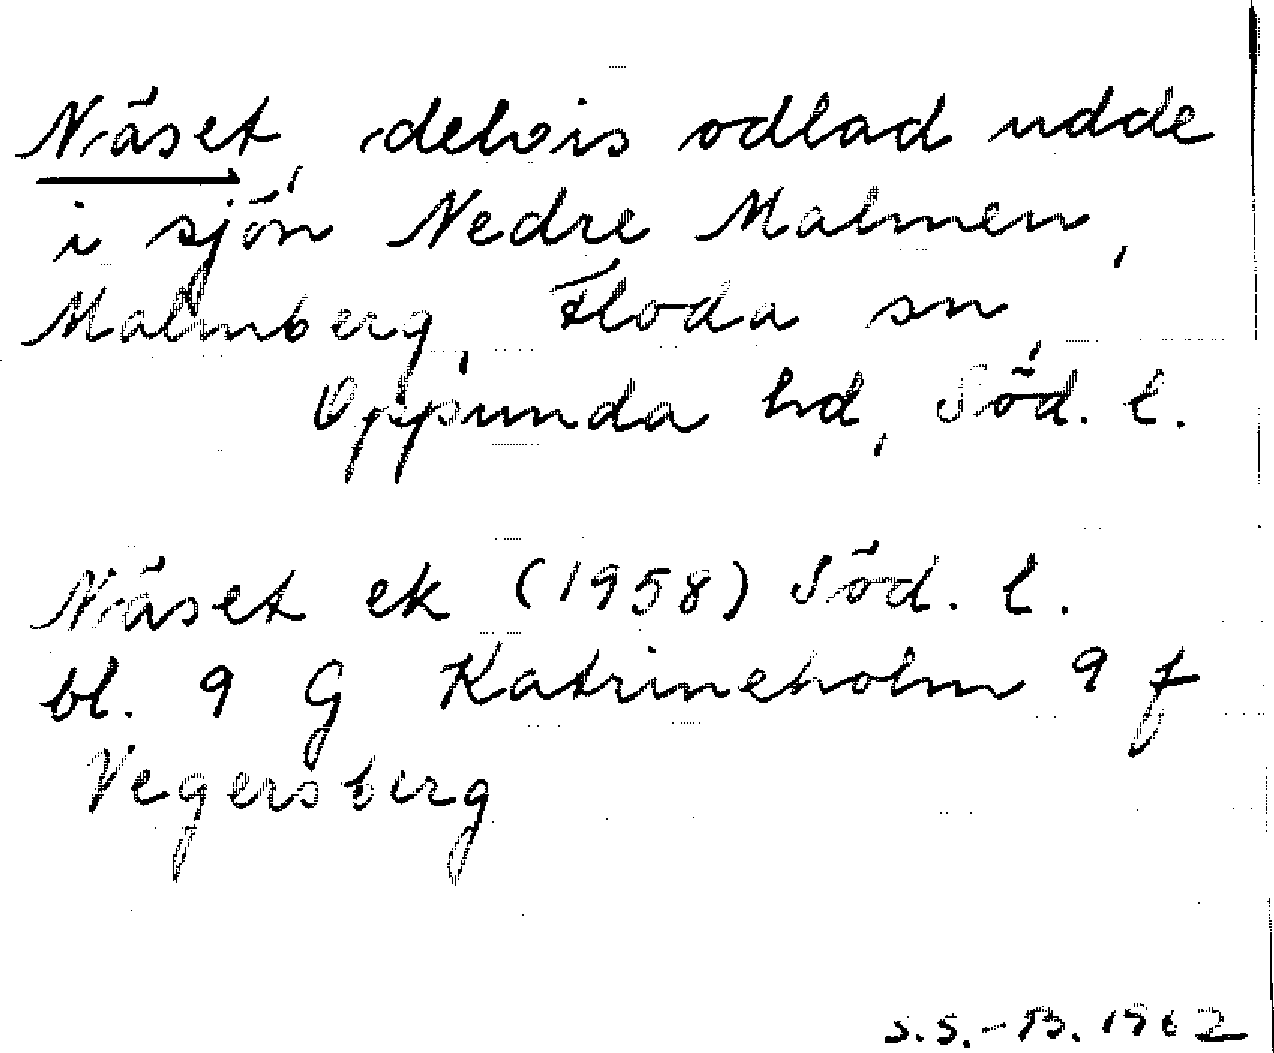 Näset, delvis odlad udde
i sjön Nedre Malmen,
Malmberg, Floda sn,
Oppunda hd, Söd. l.
Näset ek (1958) Söd. l.
bl. 9 G Katrineholm 9 f
Vegersberg
S.S.-B. 1962